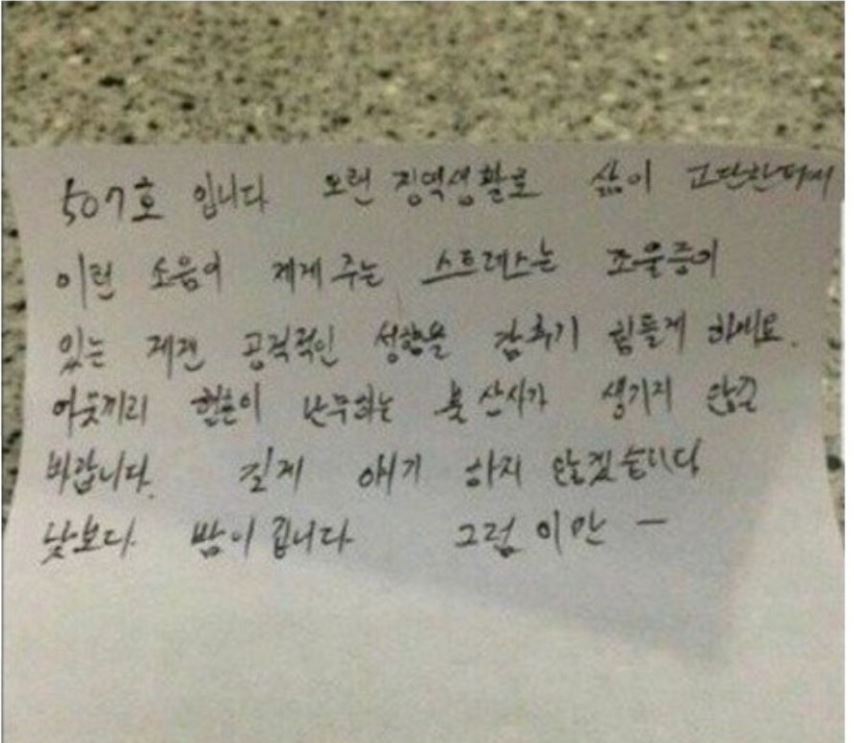 507호 입니다 오랜 징역생활로 삶이 고단한데서
이런 소음이 제게 주는 스트레스는 조울증이
있는 제겐 공격적인 성향을 감추기 힘들게 하네요.
이웃끼리 혈흔이 난무하는 불상사가 생기지 않길
바랍니다. 길게 얘기 하지 않겠습니다
낮보다 밤이 깁니다 그럼 이만 ー